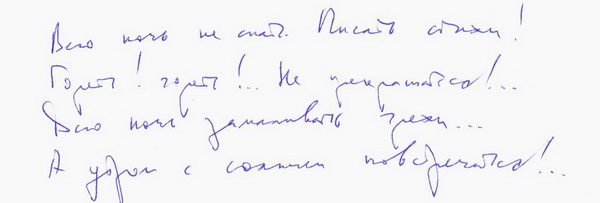 Всю ночь не спать. Писать стихи!
Гореть! гореть!.. Не прекращаться!...
Всю ночь замаливать грехи...
А утром с солнцем повстречаться!...